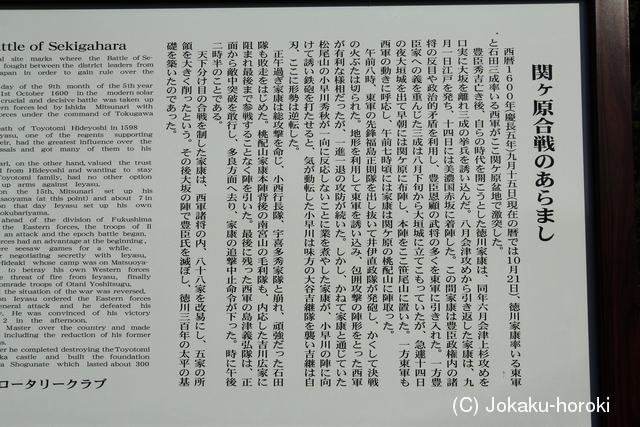 関ヶ原合戦のあらまし
西暦1600年(慶長五年)九月十五日(現在の暦では10月21日)、徳川家康率いる東軍
と石田三成率いる西軍がここ関ケ原盆地で激突した。
豊臣秀吉亡き後、自らの時代を開こうとした徳川家康は、同年六月会津上杉攻めを
口実に大坂を離れ三成の挙兵を誘い込んだ。八月会津攻めから引き返した家康は、九
月一日江戸を発ち、十四日には美濃国赤坂に着陣した。この間家康は豊臣政権内の諸
将の反目や政治的矛盾を利用し、豊臣恩顧の武将の多くを東軍に引き入れた。一方豊
臣家への義を重んじた三成は八月下旬から大垣城に立てこもっていたが、急遽十四日
の夜大垣城を出て早朝には関ケ原に布陣し、本陣をここ笹尾山に置いた。一方東軍も
西軍の動きに呼応し、午前七時頃には家康は関ケ原の桃配山に陣取った。
午前八時、東軍の先鋒福島正則隊を出し抜いて井伊直政隊が発砲し、かくして決戦
の火ぶたは切られた。地形を利用して東軍を誘い込み、包囲攻撃の陣形をとった西軍
が有利な様相だったが、一進一退の攻防が続いた。しかし、かねて家康と通じていた
松尾山の小早川秀秋が一向に反応しないことに業を煮やした家康が、小早川の陣に向
けて誘い鉄砲を打たせると、気が動転した小早川は味方の大谷吉継隊を襲い吉継は自
刃、ここに形勢は逆転した。
正午過ぎ家康は総攻撃を命じ、小西行長隊、宇喜多秀家隊と崩れ、頑強だった石田
隊も敗走をはじめた。桃配山家康本陣背後の南宮山の毛利隊も、内応した吉川広家に
阻まれ最後まで参戦することなく陣を引いた。最後に残った西軍の島津義弘隊は、正
面から敵中突破を敢行し、多良方面へ去り、家康の追撃中止命令が下った。時に午後
二時半のことである。
天下分け目の合戦を制した家康は、西軍諸将の内、八十八家を改易にし、五家の所
領を大きく削ったという。その後大坂の陣で豊臣氏を滅ぼし、徳川三百年の太平の基
礎を築いたのであった。
ttle of Sekigahara
ial site marks where the Battle of Se-
fought between the district leaders from
apan in order to gain rule over the
day of the 9th month of the 5th year
1st October 1600 in the modern solar
crucial and decisive battle was taken up
tern forces led by shida Mitsunari with
forces under the command of Tokugawa
eath of Toyotomi Hideyoshi in 1598
yasu, one of the regents supporting
eir, had the greatest influence over the
ssals and got many of them to his
ari, on the other hand, valued the trust
d from Hideyoshi and wanting to stay
Toyotomi family, had no other option
up arms against Ieyasu.
on the 15th, Mitsunari set up his
Sasaoyama (at this point) and about 7 in
on that day Ieyasu set up his own
okubariyama.
ahead of the division of Fukushima
the Eastern forces, the troops of II
attack and the epoch battle began.
rces had an advantage at the beginning,
ere seesaw games for a while.
r negotiating secretly with Ieyasu,
Hideaki whose camp was on Matsuoya-
to betray his own Western forces
e threat of fire from Ieyasu, finally
omrade troops of Otani Yoshitsugu.
e the situation of the war was reversed.
n Ieyasu ordered the Eastern forces
eneral attack and he defeated his
y. He was convinced of his victory
2 in the afternoon.
Master over the country and made
including the reduction of his former
s.
er he completed destroying the Toyotomi
ka castle and built the foundation
a Shogunate which lasted about 300
ロータリークラブ
(C) Jokaku-horoki